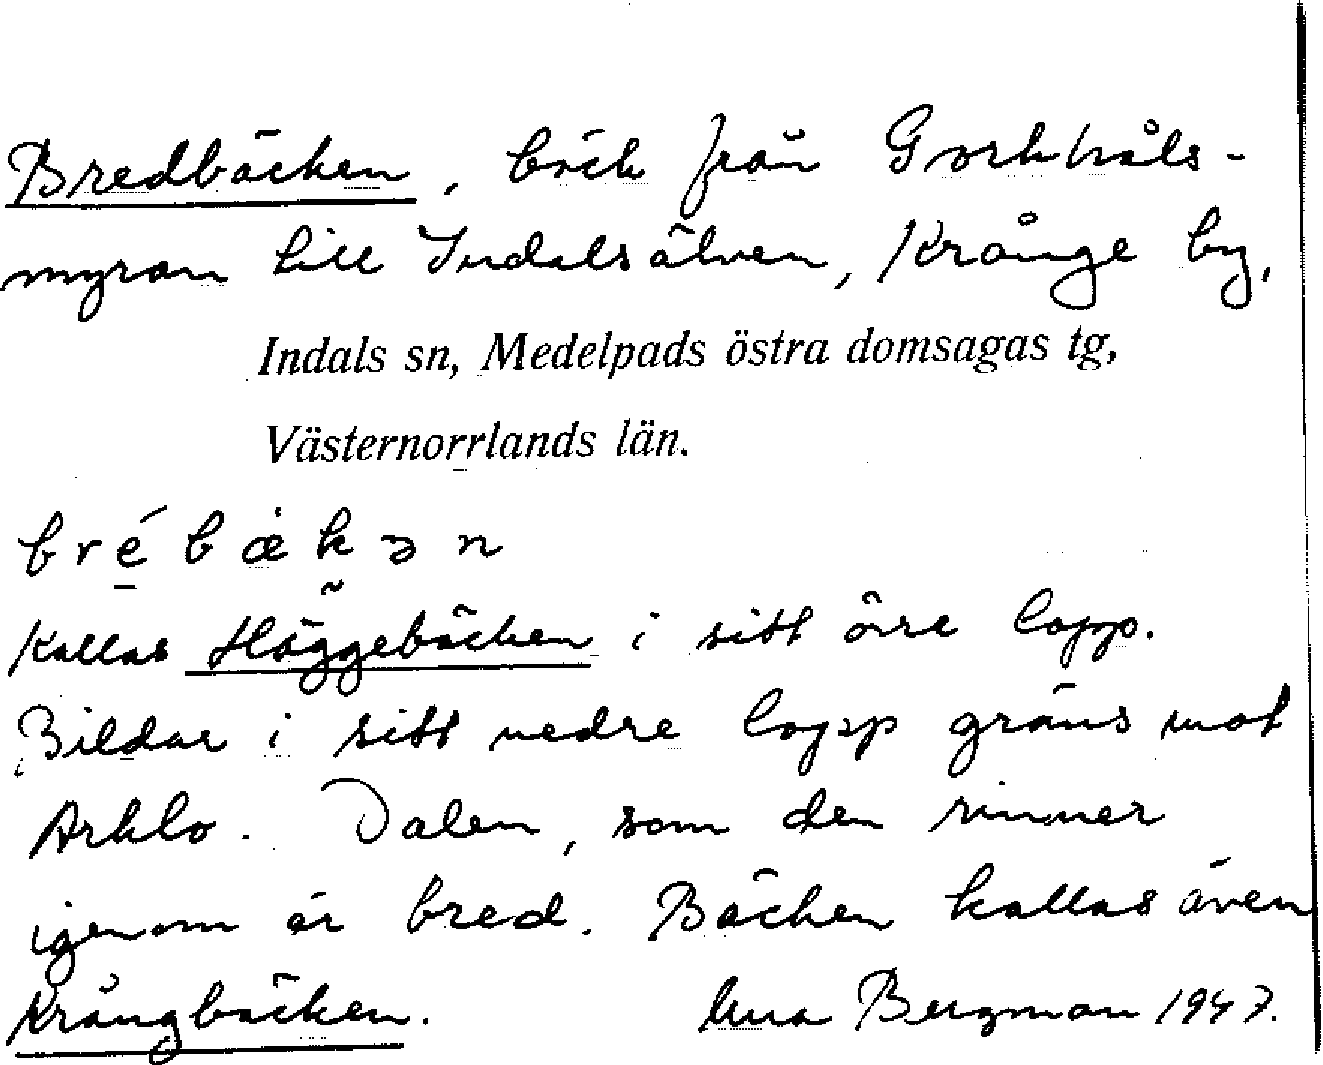 Bredbäcken, bäck från Gorkhåls-
myran till Indalsälven, Krånge by,
Indals sn, Medelpads östra domsagas tg,
Västernorrlands län.
bré̱bæ̀kən
Kallas Häggebäcken i sitt övre lopp.
Bildar i sitt nedre lopp gräns mot
Arklo. Dalen, som den rinner
igenom är bred. Bäcken kallas även
Krångbäcken. Bergman 1947.